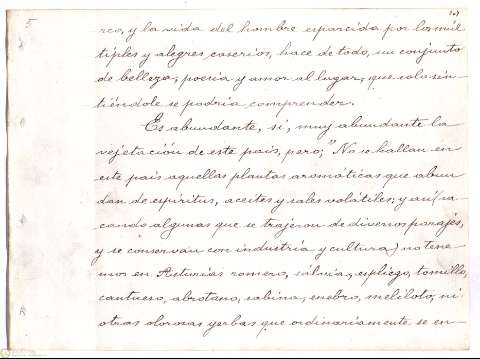 5
reo, y la vida del hombre esparcida por los múl
tiples y alegres caserios, hace de todo, un conjunto
de belleza, poesia y amor al lugar, que solo sin-
tiéndole se podria comprender.
Es abundante, si, muy abundante la
vejetación de este pais, pero; "No se hallan en
este pais aquellas plantas aromáticas que abun
dan de espiritus, aceites y sales volátiles; y asi (sa
cando algunas que se trajeron de diversos parajes,
y se conservan con industria y cultura) no tene-
mos en Asturias romero, salvia, espliego, tomillo,
cantueso, abrotano, sabina, enebro, meliloto, ni
otras olorosas yerbas que ordinariamente se en-